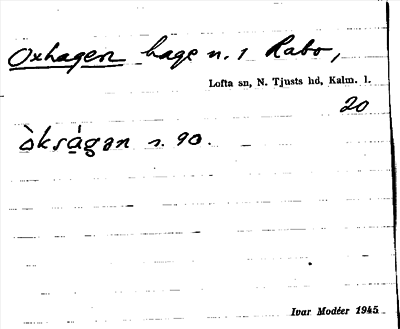 Oxhagen hage n. 1 Rabo,
Lofta sn, N. Tjusts hd, Kalm. l.
20
òksàgan n. 90.
Ivar Modéer 1945